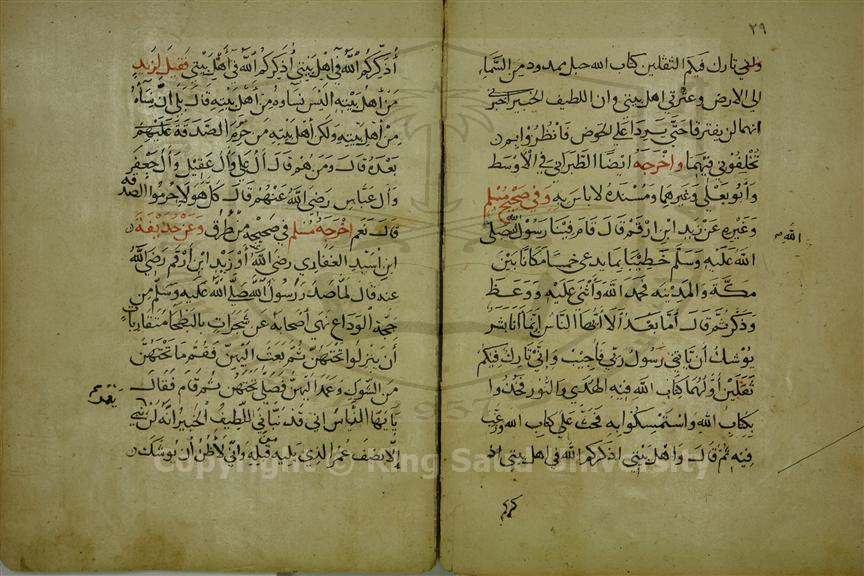 ٢٩
واني تارك فيكم الثقلين كتاب الله حبل ممدود من السماء
الى الارض وعترتي اهل بيتي وان اللطيف الخبير اخبرني
انهما لن يفترقا حتى يردا على الحوض فانظروا بم
تخلفوني فيهما واخرجه ايضا الطبراني في الاوسط
وابو يعلى وغيرهما ومسنده لا باس به وفي صحيح مسلم
وغيره عن زيد ابن ارقم قال قام فينا رسول الله صلى
الله
الله عليه وسلم خطيبا بما يدعى خما مكانا بين
مكة والمدينة فحمد الله واثنى عليه ووعظ
وذكر ثم قال اما بعد الا ايها الناس انما انا بشر
يوشك ان ياتي رسول ربي فاجيب واني تارك فيكم
ثقلين اولهما كتاب الله فيه الهدى والنور فخذوا
بكتاب الله واستمسكوا به فحث على كتاب الله ورغب
فيه ثم قال واهل بيتي اذكركم الله في اهل بيتي اذ
أذكركم الله في اهل بيتي أذكركم الله في اهل بيتي فقيل لزيد
من اهل بيته اليس نساوه من اهل بيته قال بلى ان نساءه
من اهل بيته ولكن اهل بيته من حرم الصدقة عليهم
بعده قال ومن هم قال آل علي وآل عقيل وآل جعفر
وآل عباس رضي الله عنهم قال كل هولا حرموا الصدقة
قال نعم اخرجه مسلم في صحيحه من طرق وعن حذيفة
ابن اسيد الغفاري رضي الله او زيد ابن ارقم رضي الله
عنه قال لما صدر رسول الله صلى الله عليه وسلم من
حجة الوداع نهى اصحابه عن شجرات بالبطحا متقاربات
أن ينزلوا تحتهن ثم بعث اليهن فقم ما تحتهن
من الشوك وعمد اليهن فصلى تحتهن ثم قام فقال
يايها الناس اني قد نباني اللطيف الخبير انه لن
الا نصف عمر الذي يليه من قبله واني لاظن أن يوشك
Copyright © King Saud University
1957